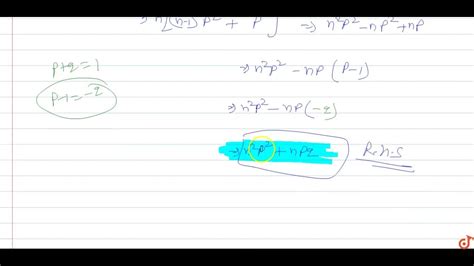 n[(n-1)p² + p] ⇒ n²p² - np² + np
p+q=1
⇒ n²p² - np (p-1)
p-1=-q
⇒ n²p² - np (-q)
⇒ n²p² + npq R.H.S